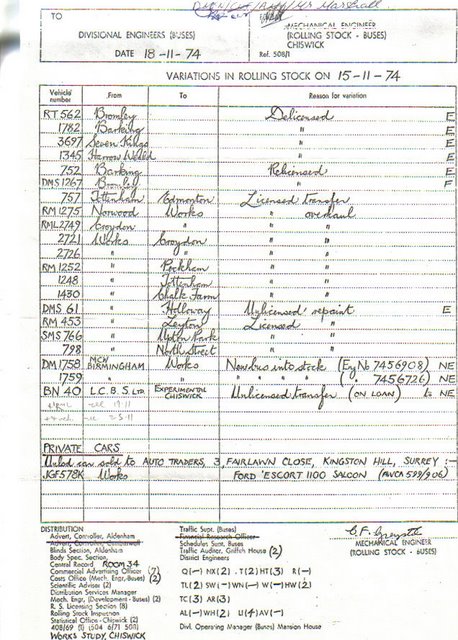 TO
DIVISIONAL ENGINEERS (BUSES)
DATE 18-11-74
MECHANICAL ENGINEER
(ROLLING STOCK - BUSES)
CHISWICK
Ref. 508/1
VARIATIONS IN ROLLING STOCK ON 15-11-74
Vehicle number From To Reason for variation
RT 562 Bromley Delicensed E
1782 Barking " E
3697 Seven Kings " E
1345 Harrow Weald " E
752 Barking Relicensed E
DMS 1267 Bromley " E
757 Tottenham Edmonton Licensed transfer
RM 1275 Norwood Works " overhaul
RML 2749 Croydon " " "
2721 Works Croydon " "
2726 " " " "
RM 1252 " Peckham " "
1248 " Tottenham " "
1430 " Chalk Farm " "
DMS 61 " Holloway Unlicensed repaint E
RM 453 " Leyton Licensed "
SMS 766 " Upton Park " "
798 " North Street " "
DM 1758 MCW BIRMINGHAM Works New bus into stock (Eng No 7456908) NE
1759 " " " " " " ( " 7456726) NE
BN 40 L.C.B.S. LTD. EXPERIMENTAL CHISWICK Unlicensed transfer (ON LOAN) NE
PRIVATE CARS
Unlcd car sold to AUTO TRADERS, 3, FAIRLAWN CLOSE, KINGSTON HILL, SURREY :-
JGF 578K Works FORD 'ESCORT 1100 SALOON
DISTRIBUTION
Advert, Controller, Aldenham
Blinds Section, Aldenham
Body Spec. Section,
Central Record ROOM 34
Commercial Advertising Officer (7)
Costs Office (Mech. Engr.-Buses) (2)
Scientific Adviser (2)
Distribution Services Manager
Mech. Engr, (Development - Buses) (2)
R. S. Licensing Section (8)
Rolling Stock Inspection
Statistical Office - Chiswick (2)
408/69 (1) (504 6/71 50)
WORKS STUDY, CHISWICK
Traffic Supt. (Buses)
Financial Research Officer
Schedules Supt. Buses
Traffic Auditor, Griffith House (2)
District Engineers
Q(-) NX(2) . T(2) HT(3) R(-)
TL(2) SW(-) WN(-) W(-) HW(2)
TC(3) AR(3)
AL(-) WH(2) U(4) AV(-)
Divl. Operating Manager (Buses) Mansion House
MECHANICAL ENGINEER
(ROLLING STOCK - BUSES)